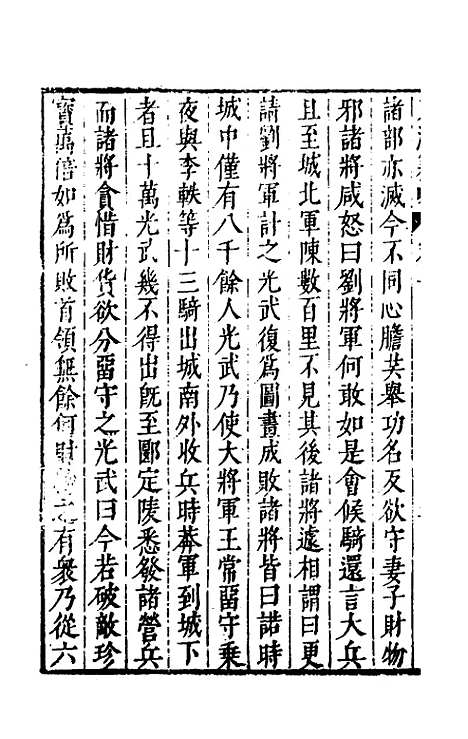 諸部亦滅今不同心膽共舉功名反欲守妻子財物
邪諸將咸怒曰劉將軍何敢如是會候騎還言大兵
且至城北軍陳數百里不見其後諸將遽相謂曰更
請劉將軍計之光武復爲圖畫成敗諸將皆曰諾時
城中僅有八千餘人光武乃使大將軍王常畱守乘
夜與李軼等十三騎出城南外收兵時莽軍到城下
者且十萬光武幾不得出旣至郾定陵悉發諸營兵
而諸將貪惜財貨欲分畱守之光武曰今若破敵珍
寶萬倍如爲所敗首領無餘何財之有衆乃從六